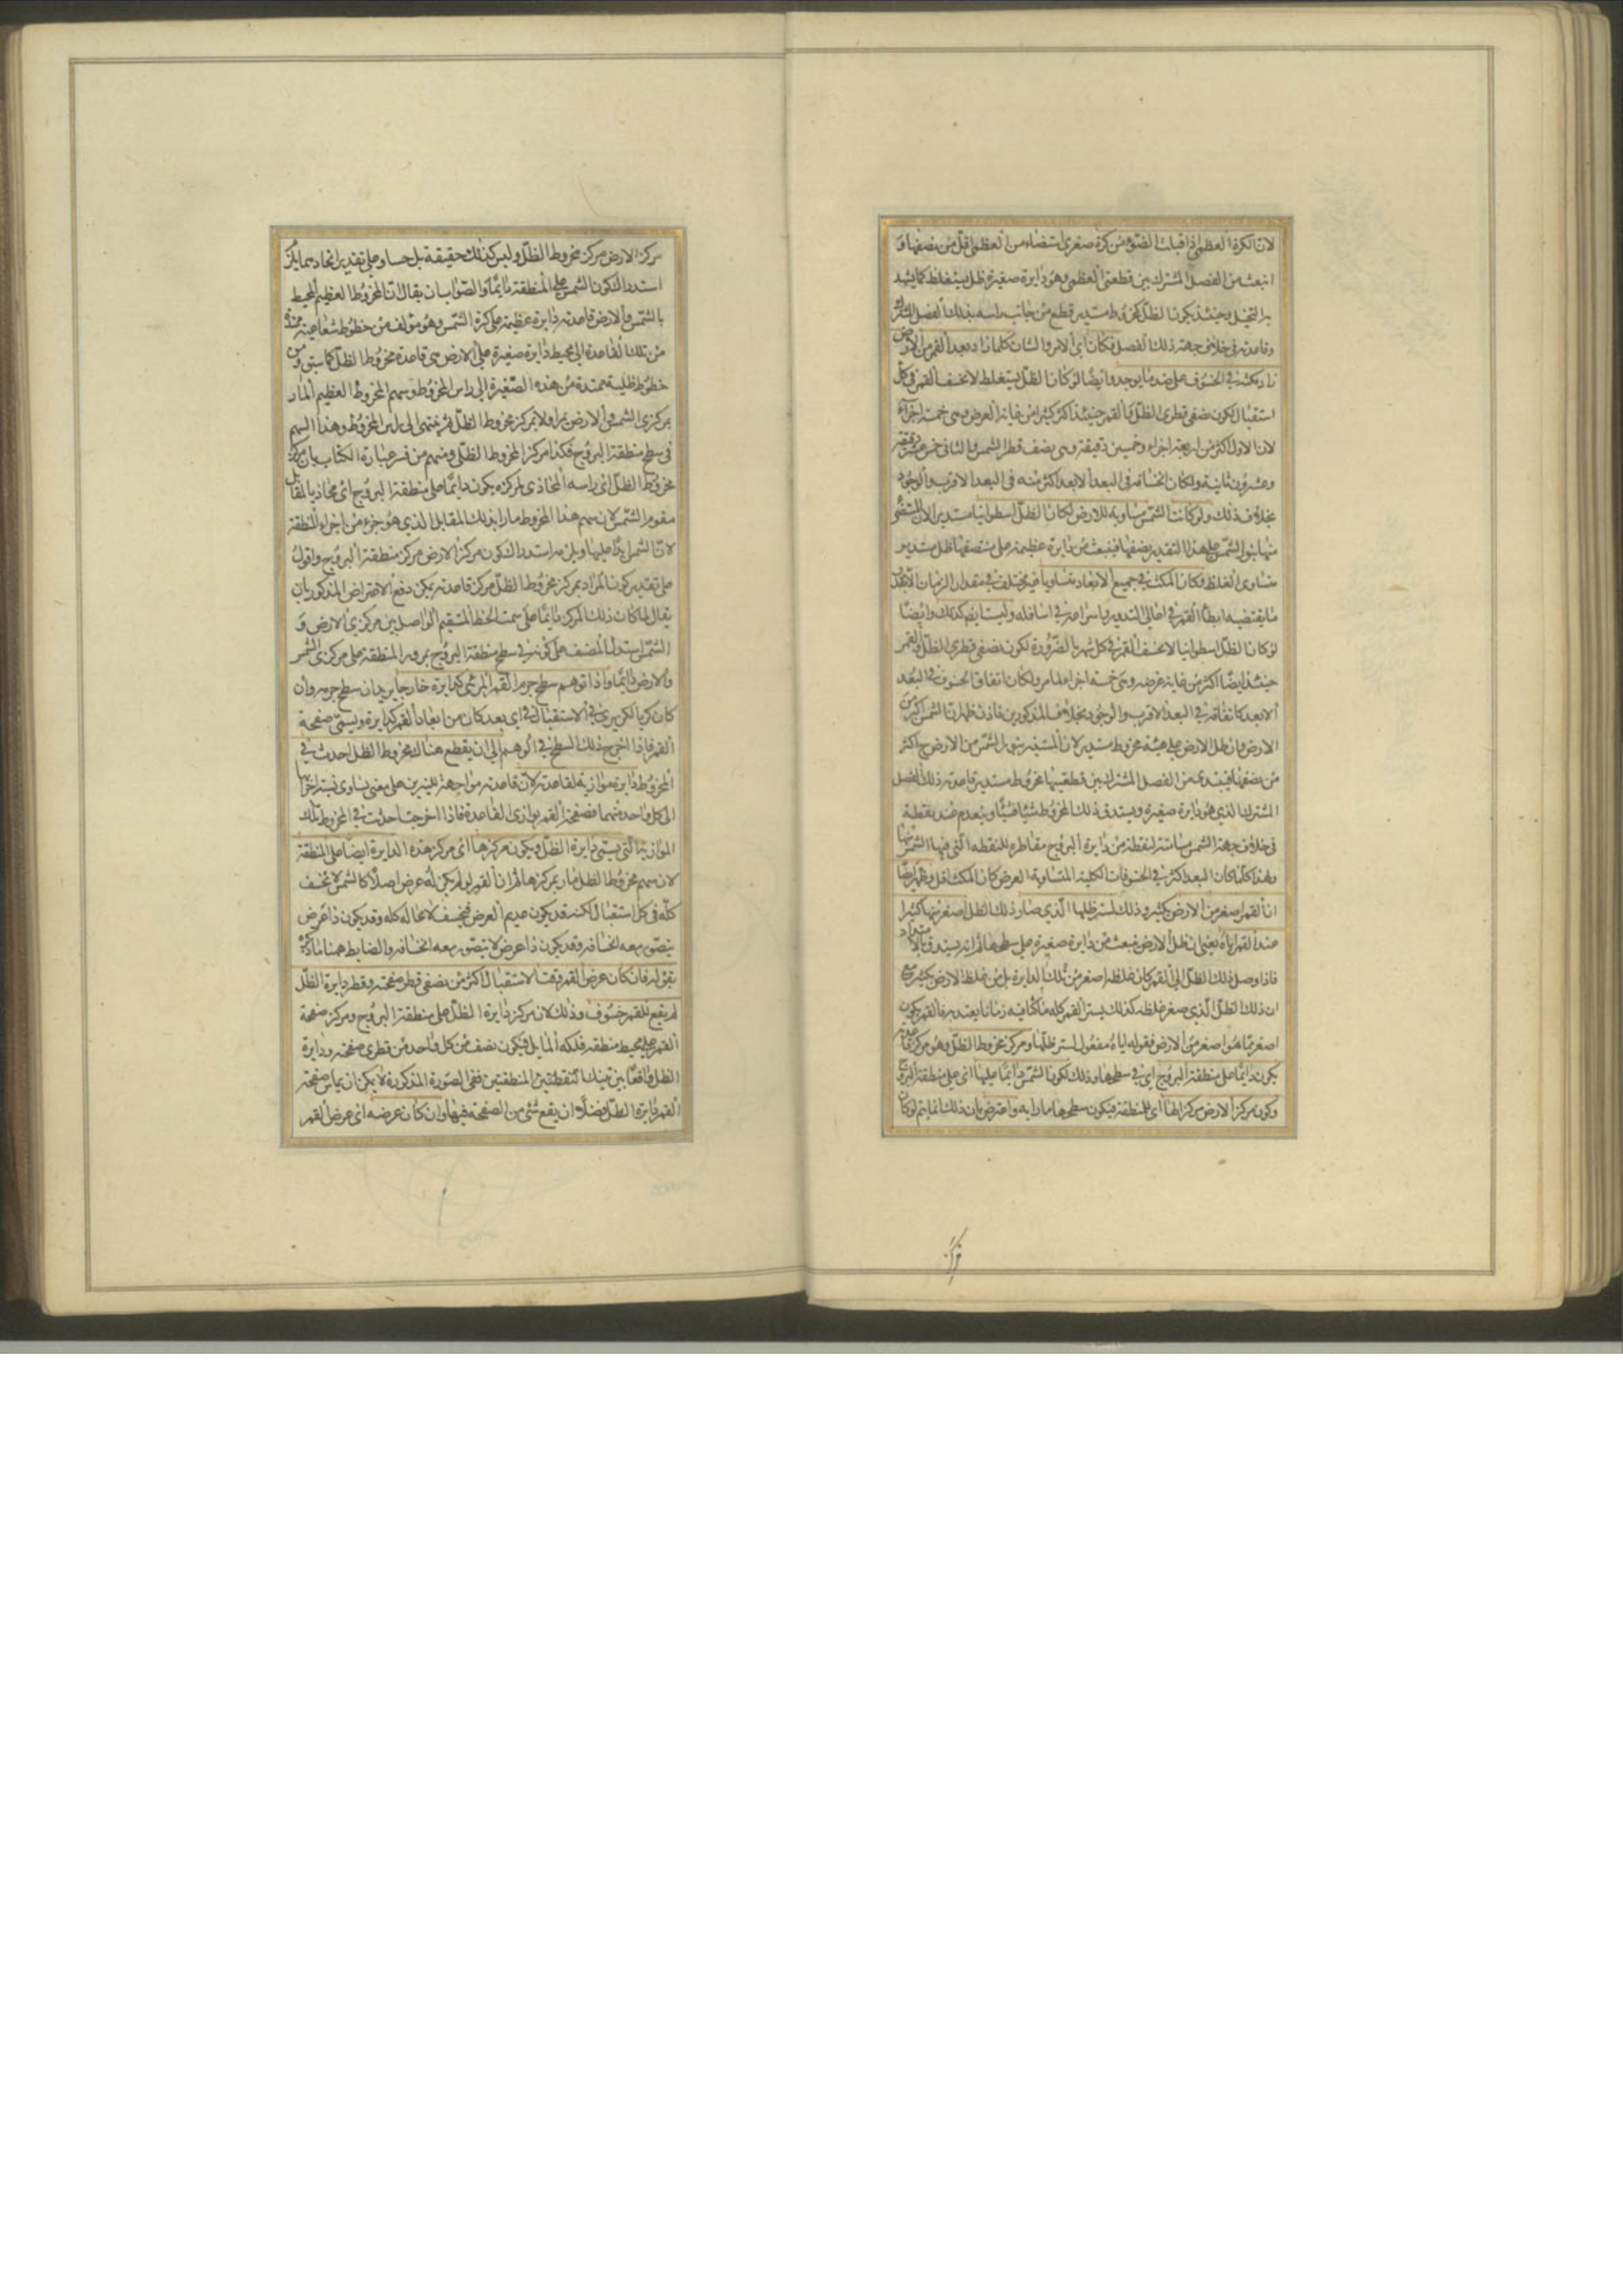 لان الكرة العظمى اذا قبلت الضوء من كرة صغرى استضاء من العظمى اقل من نصفها و
انبعث من الفصل المشترك بين قطعتى العظمى وهو دايرة صغيرة ظل يستغلظ كما يشهد
به التخيل وحينئذ يكون الظل مخروط مستدير قطع من جانب راسه بذلك الفصل المشترك
وقاعدته فى خلاف جهة ذلك الفصل فكان اى الامر والشان كلما ازداد بعد القمر من الارض
زاد مكثه فى الخسوف على ضد ما يوجد وايضا لو كان الظل يستغلظ لانخسف القمر فى كل
استقبال لكون نصفى قطرى الظل والقمر حينئذ اكثر كثيرا من غاية العرض وهى خمسة اجزاء
لان الاول اكثر من اربعة اجزاء وخمسين دقيقة وهى نصف قطر الشمس والثانى خمس عشرة دقيقة
وعشرون ثانية ولكان انخسافه فى البعد الابعد اكثر منه فى البعد الاقرب والوجود
بخلاف ذلك ولو كانت الشمس مساوية للارض لكان الظل اسطوانيا مستديرا لان المستضئ
منها بنور الشمس على هذا التقدير نصفها فينبعث من دايرة عظيمة على منتصفها ظل مستدير
متساوى الغلظ فكان المكث فى جميع الابعاد متساويا غير مختلف فى مقدار الزمان الا بقدر
ما يقتضيه ابطاء القمر فى اعالى التدوير واسراعه فى اسافله وليست كذلك وايضا
لو كان الظل اسطوانيا لانخسف القمر فى كل شهر بالضرورة لكون نصفى قطرى الظل والقمر
حينئذ ايضا اكثر من غاية عرضه وهى خمسة اجزاء لما مر ولكان اتفاق الخسوف فى البعد
الابعد كاتفاقه فى البعد الاقرب والوجود بخلاف المذكورين فاذن ظهر ان الشمس اكبر من
الارض وان ظل الارض على هيئة مخروط مستدير لان المستنير بنور الشمس من الارض ح اكثر
من نصفها فيبتدى من الفصل المشترك بين قطعتيها مخروط مستدير قاعدته ذلك الفصل
المشترك الذى هو دايرة صغيرة ويستدق ذلك المخروط شيئا فشيئا وينعدم عند نقطة
فى خلاف جهة الشمس مسامتة لنقطة من دايرة البروج مقاطرة للنقطة التى فيها الشمس منها
ولهذا كلما كان البعد اكثر فى الخسوفات الكلية المتساوية العرض كان المكث اقل وظهر ايضا
ان القمر اصغر من الارض بكثير وذلك لستر ظلها الذى صار ذلك الظل اصغر منها كثيرا
عند القمر اياه يعنى ان ظل الارض ينبعث من دايرة صغيرة على سطحها ثم انه يستدق بالامتداد
فاذا وصل ذلك الظل الى القمر كان غلظه اصغر من تلك الدايرة بل من غلظ الارض بكثير مع
ان ذلك الظل الذى صغر غلظه كذلك يستر القمر كله ماكثا فيه زمانا يعتد به فالقمر يكون
اصغر مما هو اصغر من الارض فقوله اياه مفعول لستر ظلها ومركز مخروط الظل وهو مركز قاعدته
يكون دايما على منطقة البروج اى فى سطحها وذلك لكون الشمس دايما عليها اى على منطقة البروج
وكون مركز الارض مركزا لها اى للمنطقة فيكون سطحها مارا به واعترض بان ذلك انما يتم لو كان
مركز الارض مركز مخروط الظل وليس كذلك حقيقة بل حسا وعلى تقدير اتحادهما
استدراك كون الشمس على المنطقة دايما والصواب ان يقال ان المخروط العظيم المحيط
بالشمس والارض قاعدته دايرة عظيمة على كرة الشمس وهو مؤلف من خطوط شعاعية ممتدة
من تلك القاعدة الى محيط دايرة صغيرة على الارض هى قاعدة مخروط الظل كما سبق ومن
خطوط ظلية ممتدة من هذه الصغيرة الى راس المخروط وسهم المخروط العظيم المار
بمركزى الشمس والارض يمر اولا بمركز مخروط الظل ثم ينتهى الى راس المخروط وهذا السهم
فى سطح منطقة البروج فكذا مركز المخروط الظلى ومنهم من فسر عبارة الكتاب بان مركز
مخروط الظل اى راسه المحاذى لمركزه يكون دايما على منطقة البروج اى محاذيا لمقابل
مقوم الشمس لان سهم هذا المخروط مار بذلك المقابل الذى هو جزء من اجزاء المنطقة
لان الشمس دايما عليها ويلزمه استدراك كون مركز الارض مركز منطقة البروج واقول
على تقدير كون المراد بمركز مخروط الظل مركز قاعدته يمكن دفع الاعتراض المذكور بان
يقال لما كان ذلك المركز دايما على سمت الخط المستقيم الواصل بين مركزى الارض و
الشمس استدل المصنف على كونه فى سطح منطقة البروج بمرور المنطقة على مركزى الشمس
والارض دايما واذا توهم سطح جرم القمر المرئى كدايرة خارجا يريد ان سطح جرمه وان
كان كريا لكن يرى فى الاستقبال فى اى بعد كان من ابعاد القمر كدايرة ويسمى صفحة
القمر فاذا اخرج ذلك السطح فى الوهم الى ان يقطع هناك مخروط الظل احدث فى
المخروط دايرة موازية لقاعدته لان قاعدته مواجهة للنيرين على معنى تساوى نسبة اجزائها
الى كل واحد منهما فصفحة القمر يوازى القاعدة فاذا اخرجت احدثت فى المخروط تلك
الموازية التى يسمى دايرة الظل ويكون مركزها اى مركز هذه الدايرة ايضا على المنطقة
لان سهم مخروط الظل مار بمركزها ثم ان القمر لو لم يكن له عرض اصلا كالشمس لانخسف
كله فى كل استقبال لكنه قد يكون عديم العرض فينخسف لا محالة كله وقد يكون ذا عرض
يتصور معه انخسافه وقد يكون ذا عرض لا يتصور معه انخسافه والضابط ههنا ما ذكره
بقوله فان كان عرض القمر وقت الاستقبال اكثر من نصفى قطر صفحته وقطر دايرة الظل
لم يقع للقمر خسوف وذلك لان مركز دايرة الظل على منطقة البروج ومركز صفحة
القمر على محيط منطقة فلكه المايل فيكون نصف من كل واحد من قطرى صفحته ودايرة
الظل واقعا بين تينك النقطتين المنطقتين ففى الصورة المذكورة لا يمكن ان يماس صفحة
القمر دايرة الظل فضلا ان يقع شئ من الصفحة فيها وان كان عرضه اى عرض القمر